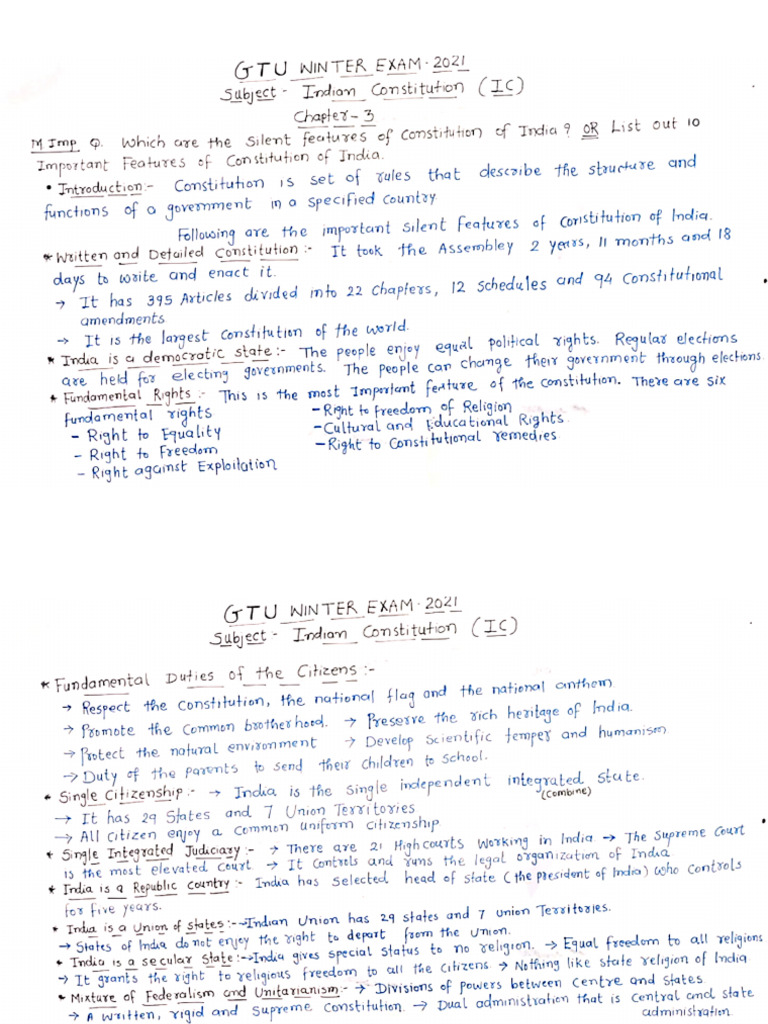 GTU WINTER EXAM-2021
Subject - Indian Constitution (IC)
Chapter-3
M Imp Q. Which are the Silent features of Constitution of India? OR List out 10
Important Features of Constitution of India.
• Introduction:- Constitution is set of rules that describe the structure and
functions of a government in a specified country.
Following are the important Silent features of Constitution of India.
* Written and Detailed Constitution:- It took the Assembley 2 years, 11 months and 18
days to write and enact it.
→ It has 395 Articles divided into 22 Chapters, 12 Schedules and 94 Constitutional
amendments
→ It is the largest Constitution of the world.
* India is a democratic state:- The people enjoy equal political rights. Regular elections
are held for electing governments. The people can change their government through elections.
* Fundamental Rights:- This is the most Important feature of the constitution. There are six
fundamental rights
- Right to Equality
- Right to Freedom
- Right against Exploitation
- Right to freedom of Religion
- Cultural and Educational Rights.
- Right to Constitutional remedies.
GTU WINTER EXAM-2021
Subject - Indian Constitution (IC)
* Fundamental Duties of the Citizens:-
→ Respect the constitution, the national flag and the national anthem
→ Promote the Common brotherhood. → Preserve the rich heritage of India.
→ Protect the natural environment → Develop Scientific temper and humanism.
→ Duty of the parents to send their children to school.
* Single Citizenship:- → India is the single independent integrated State.
(Combine)
→ It has 29 States and 7 Union Territories
→ All citizen enjoy a Common uniform citizenship
* Single Integrated Judiciary:- → There are 21 High courts working in India → The Supreme Court
is the most elevated Court → It Controls and runs the legal organization of India.
* India is a Republic country:- India has selected head of state (the president of India) who controls
for five years.
* India is a Union of states:- → Indian Union has 29 states and 7 union Territories.
→ States of India do not enjoy the right to depart from the Union.
* India is a secular state:- → India gives special status to no religion. → Equal freedom to all religions
→ It grants the right to religious freedom to all the citizens → Nothing like state religion of India
* Mixture of Federalism and Unitarianism:- → Divisions of powers between Centre and States.
→ A written, rigid and Supreme Constitution. → Dual administration that is Central and state
administration.